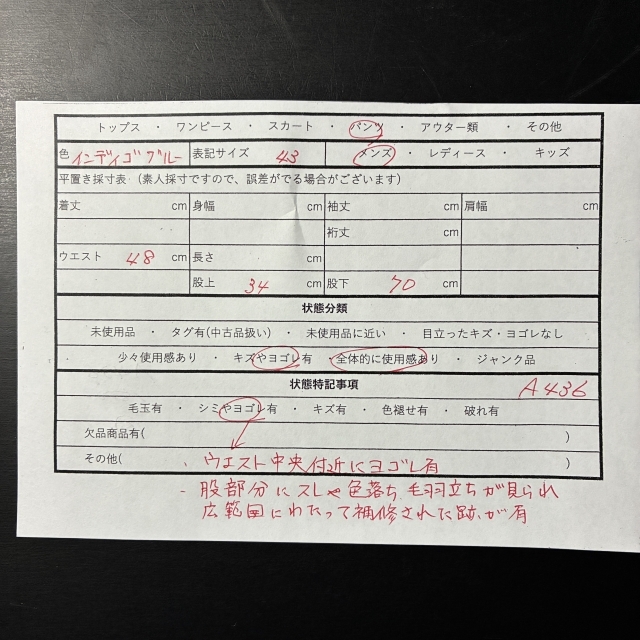 トップス ・ ワンピース ・ スカート ・ パンツ ・ アウター類 ・ その他
色 インディゴブルー 表記サイズ 43 メンズ ・ レディース ・ キッズ
平置き採寸表（素人採寸ですので、誤差がでる場合がございます）
着丈 cm 身幅 cm 袖丈 cm 肩幅 cm
裄丈 cm
ウエスト 48 cm 長さ cm
股上 34 cm 股下 70 cm
状態分類
未使用品 ・ タグ有(中古品扱い) ・ 未使用品に近い ・ 目立ったキズ・ヨゴレなし
少々使用感あり ・ キズやヨゴレ有 ・ 全体的に使用感あり ・ ジャンク品
状態特記事項 A436
毛玉有 ・ シミやヨゴレ有 ・ キズ有 ・ 色褪せ有 ・ 破れ有
欠品商品有( )
その他( ・ウエスト中央付近にヨゴレ有 )
・股部分にスレや色落ち、毛羽立ちが見られ
広範囲にわたって補修された跡が有